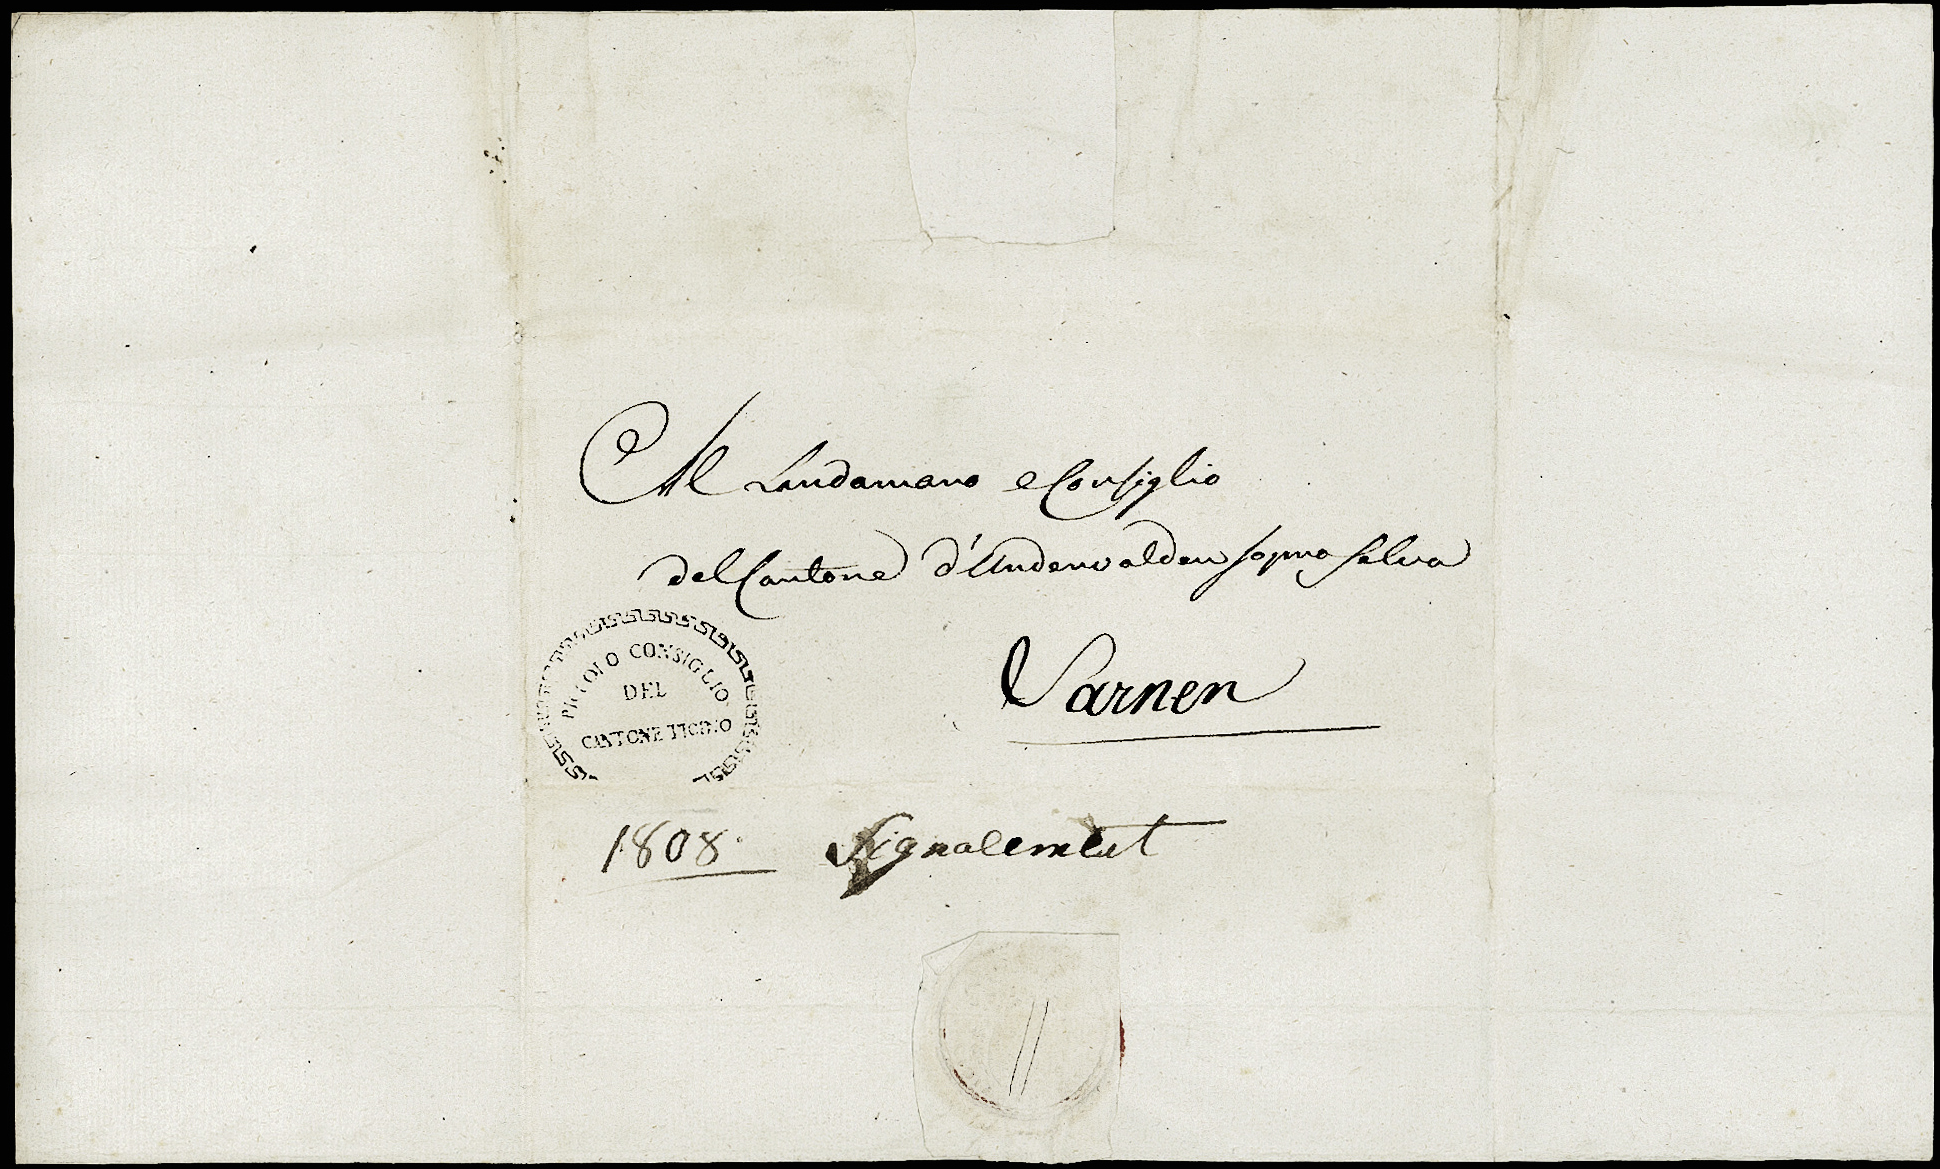 Al Landamano e Consiglio
del Cantone d'Underwalden sopra Selva
Sarnen
PICCOLO CONSIGLIO
DEL
CANTONE TICINO
1808. Signalement